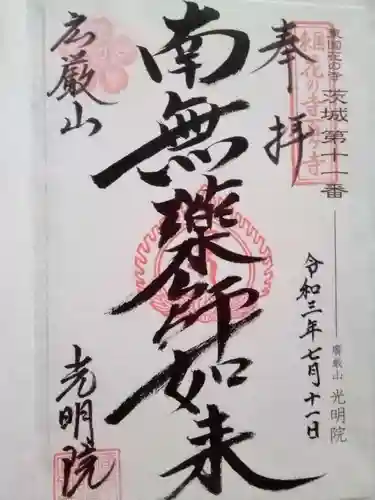 東国花の寺 茨城 第十一番
廣厳山 光明院
東国花の寺百ヶ寺
奉拝
令和三年七月十一日
南無薬師如来
広厳山
光明院